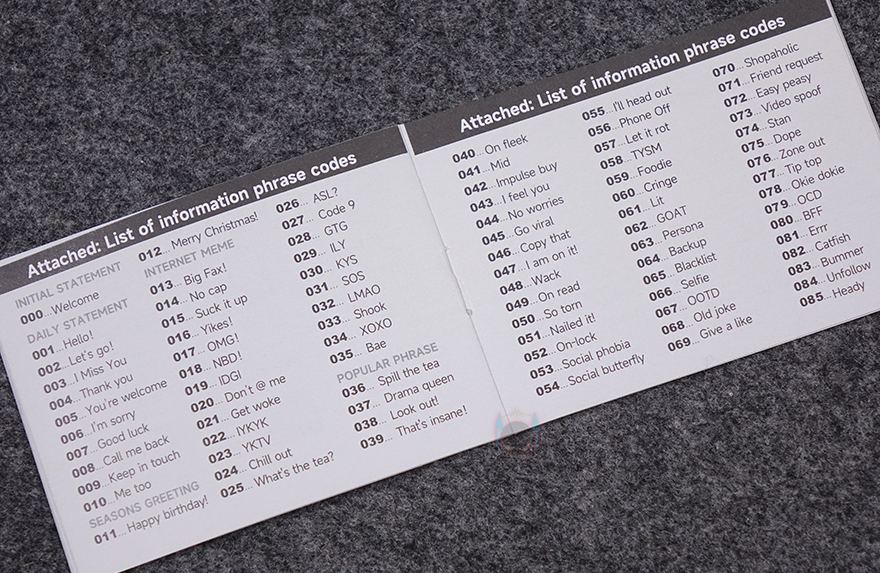 Attached: List of information phrase codes
INITIAL STATEMENT
000...Welcome
DAILY STATEMENT
001...Hello!
002...Let's go!
003...I Miss You
004...Thank you
005...You're welcome
006...I'm sorry
007...Good luck
008...Call me back
009...Keep in touch
010...Me too
SEASONS GREETING
011...Happy birthday!
012... Merry Christmas!
INTERNET MEME
013... Big Fax!
014... No cap
015... Suck it up
016... Yikes!
017... OMG!
018... NBD!
019... IDGI
020... Don't @ me
021... Get woke
022... YKYK
023... YKTV
024... Chill out
025... What's the tea?
026... ASL?
027... Code 9
028... GTG
029... ILY
030... KYS
031... SOS
032... LMAO
033... Shook
034... XOXO
035... Bae
POPULAR PHRASE
036... Spill the tea
037... Drama queen
038... Look out!
039... That's insane!
Attached: List of information phrase codes
040...On fleek
041...Mid
042...Impulse buy
043...I feel you
044...No worries
045...Go viral
046...Copy that
047...I am on it!
048...Wack
049...On read
050...So torn
051...Nailed it!
052...On-lock
053...Social phobia
054...Social butterfly
055...I'll head out
056...Phone Off
057...Let it rot
058...TYSM
059...Foodie
060...Cringe
061...Lit
062...GOAT
063...Persona
064...Backup
065...Blacklist
066...Selfie
067...OOTD
068...Old joke
069...Give a like
070...Shopaholic
071...Friend request
072...Easy peasy
073...Video spoof
074...Stan
075...Dope
076...Zone out
077...Tip top
078...Okie dokie
079...OCD
080...BFF
081...Errr
082...Catfish
083...Bummer
084...Unfollow
085...Heady